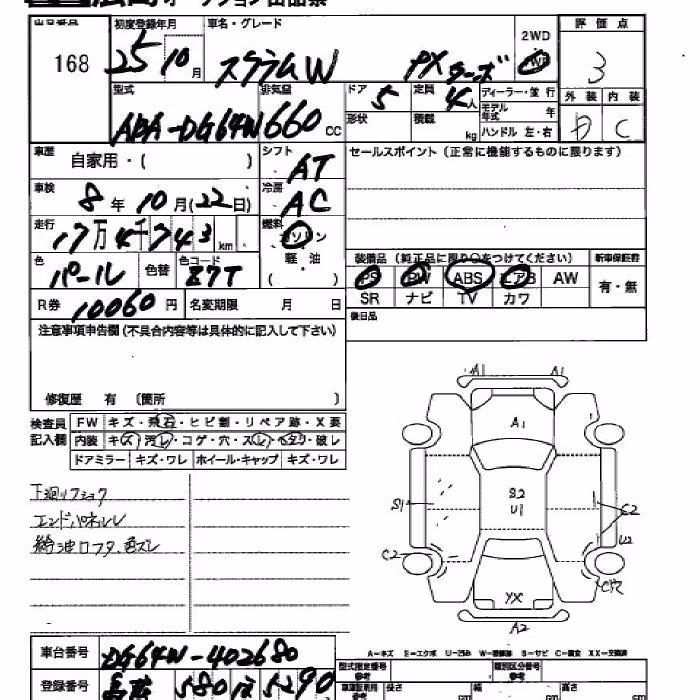 出品番号 初度登録年月 車名・グレード 評価点
168 25 10月 スクラムW PXターボ 2WD 4WD 3
型式 排気量 ドア 定員 ディーラー・並行 外装 内装
ABA-DG64W 660cc 5 4人 モデル年式 年 D C
形状 積載 kg ハンドル 左・右
車歴 自家用・( ) シフト AT セールスポイント (正常に機能するものに限ります)
車検 8年10月(22日) 冷房 AC
走行 17万4千743km 燃料 ガソリン
軽油
( )
装備品 (純正品に限り○をつけてください) 新車保証書
色 パール 色替 色コード Z7T
PS PW ABS エアB AW 有・無
SR ナビ TV カワ
R券 10060円 名変期限 月 日
後日品
注意事項申告欄(不具合内容等は具体的に記入して下さい)
修復歴 有 〔箇所 〕
検査員記入欄
FW キズ・飛石・ヒビ割・リペア跡・X要
内装 キズ・汚レ・コゲ・穴・スレ・ヘタリ・破レ
ドアミラー キズ・ワレ ホイール・キャップ キズ・ワレ
下廻リフショク
エンドパネルレ
給油口フタ、色ズレ
A1 A1
A1
S1 S2 U1 C2
U2
C2
XX
A2
A-キズ E-エクボ U-凹み W-補修跡 S-サビ C-腐食 XX-交換済
車台番号 DG64W-402680
登録番号 580 5290
型式指定番号 類別区分番号
長さ cm 幅 cm 高さ cm